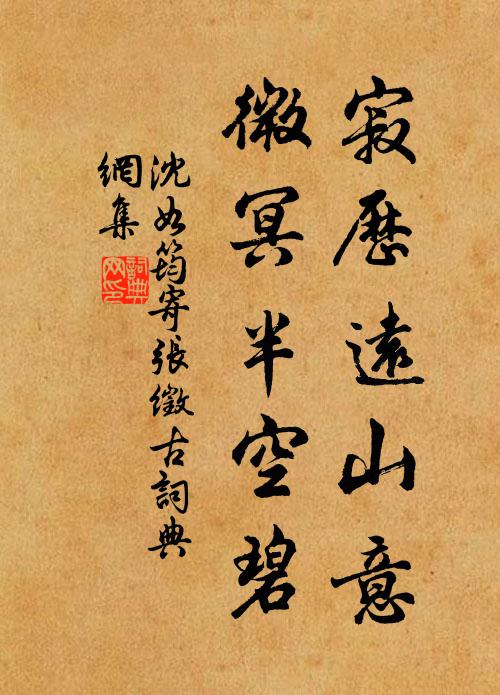 寂歷遠山意
微冥半空碧
沈如筠寄張徵古詞典
網集
詞典網印